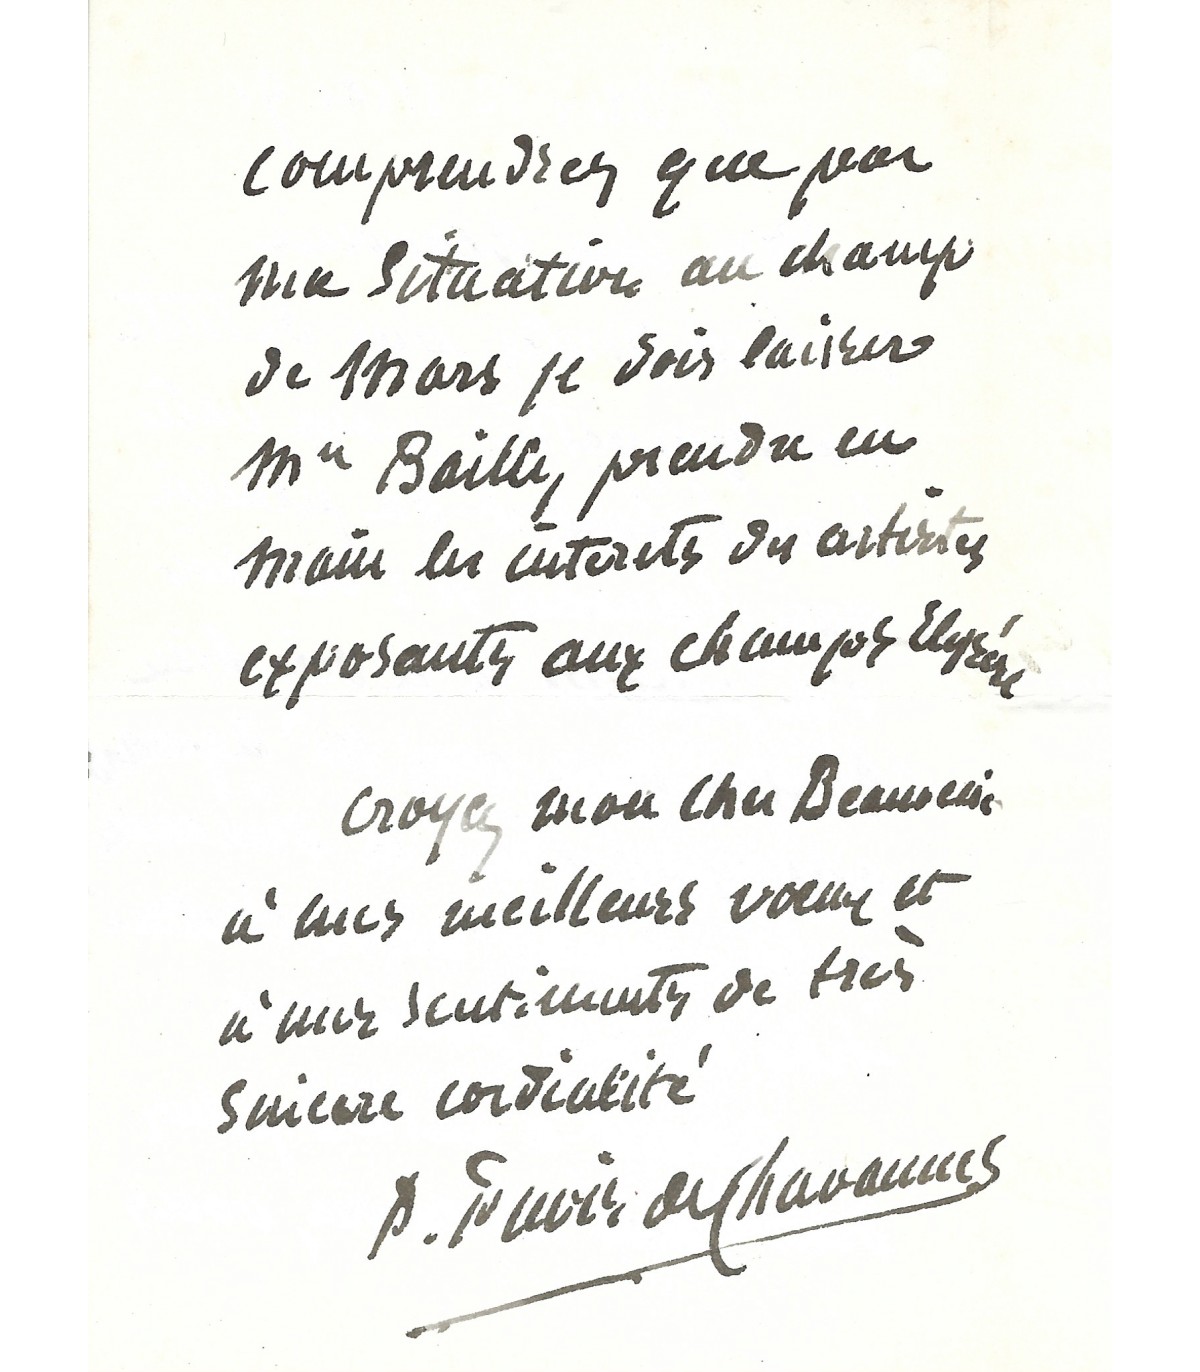 comprendrez que par
ma situation au champ
de Mars je dois laisser
Mr Bailly, prendre en
main les interets des artistes
exposants aux champs Elysées
croyez mon cher
à mes meilleurs voeux et
à mes sentiments de très
sincere cordialité
P. Puvis de Chavannes